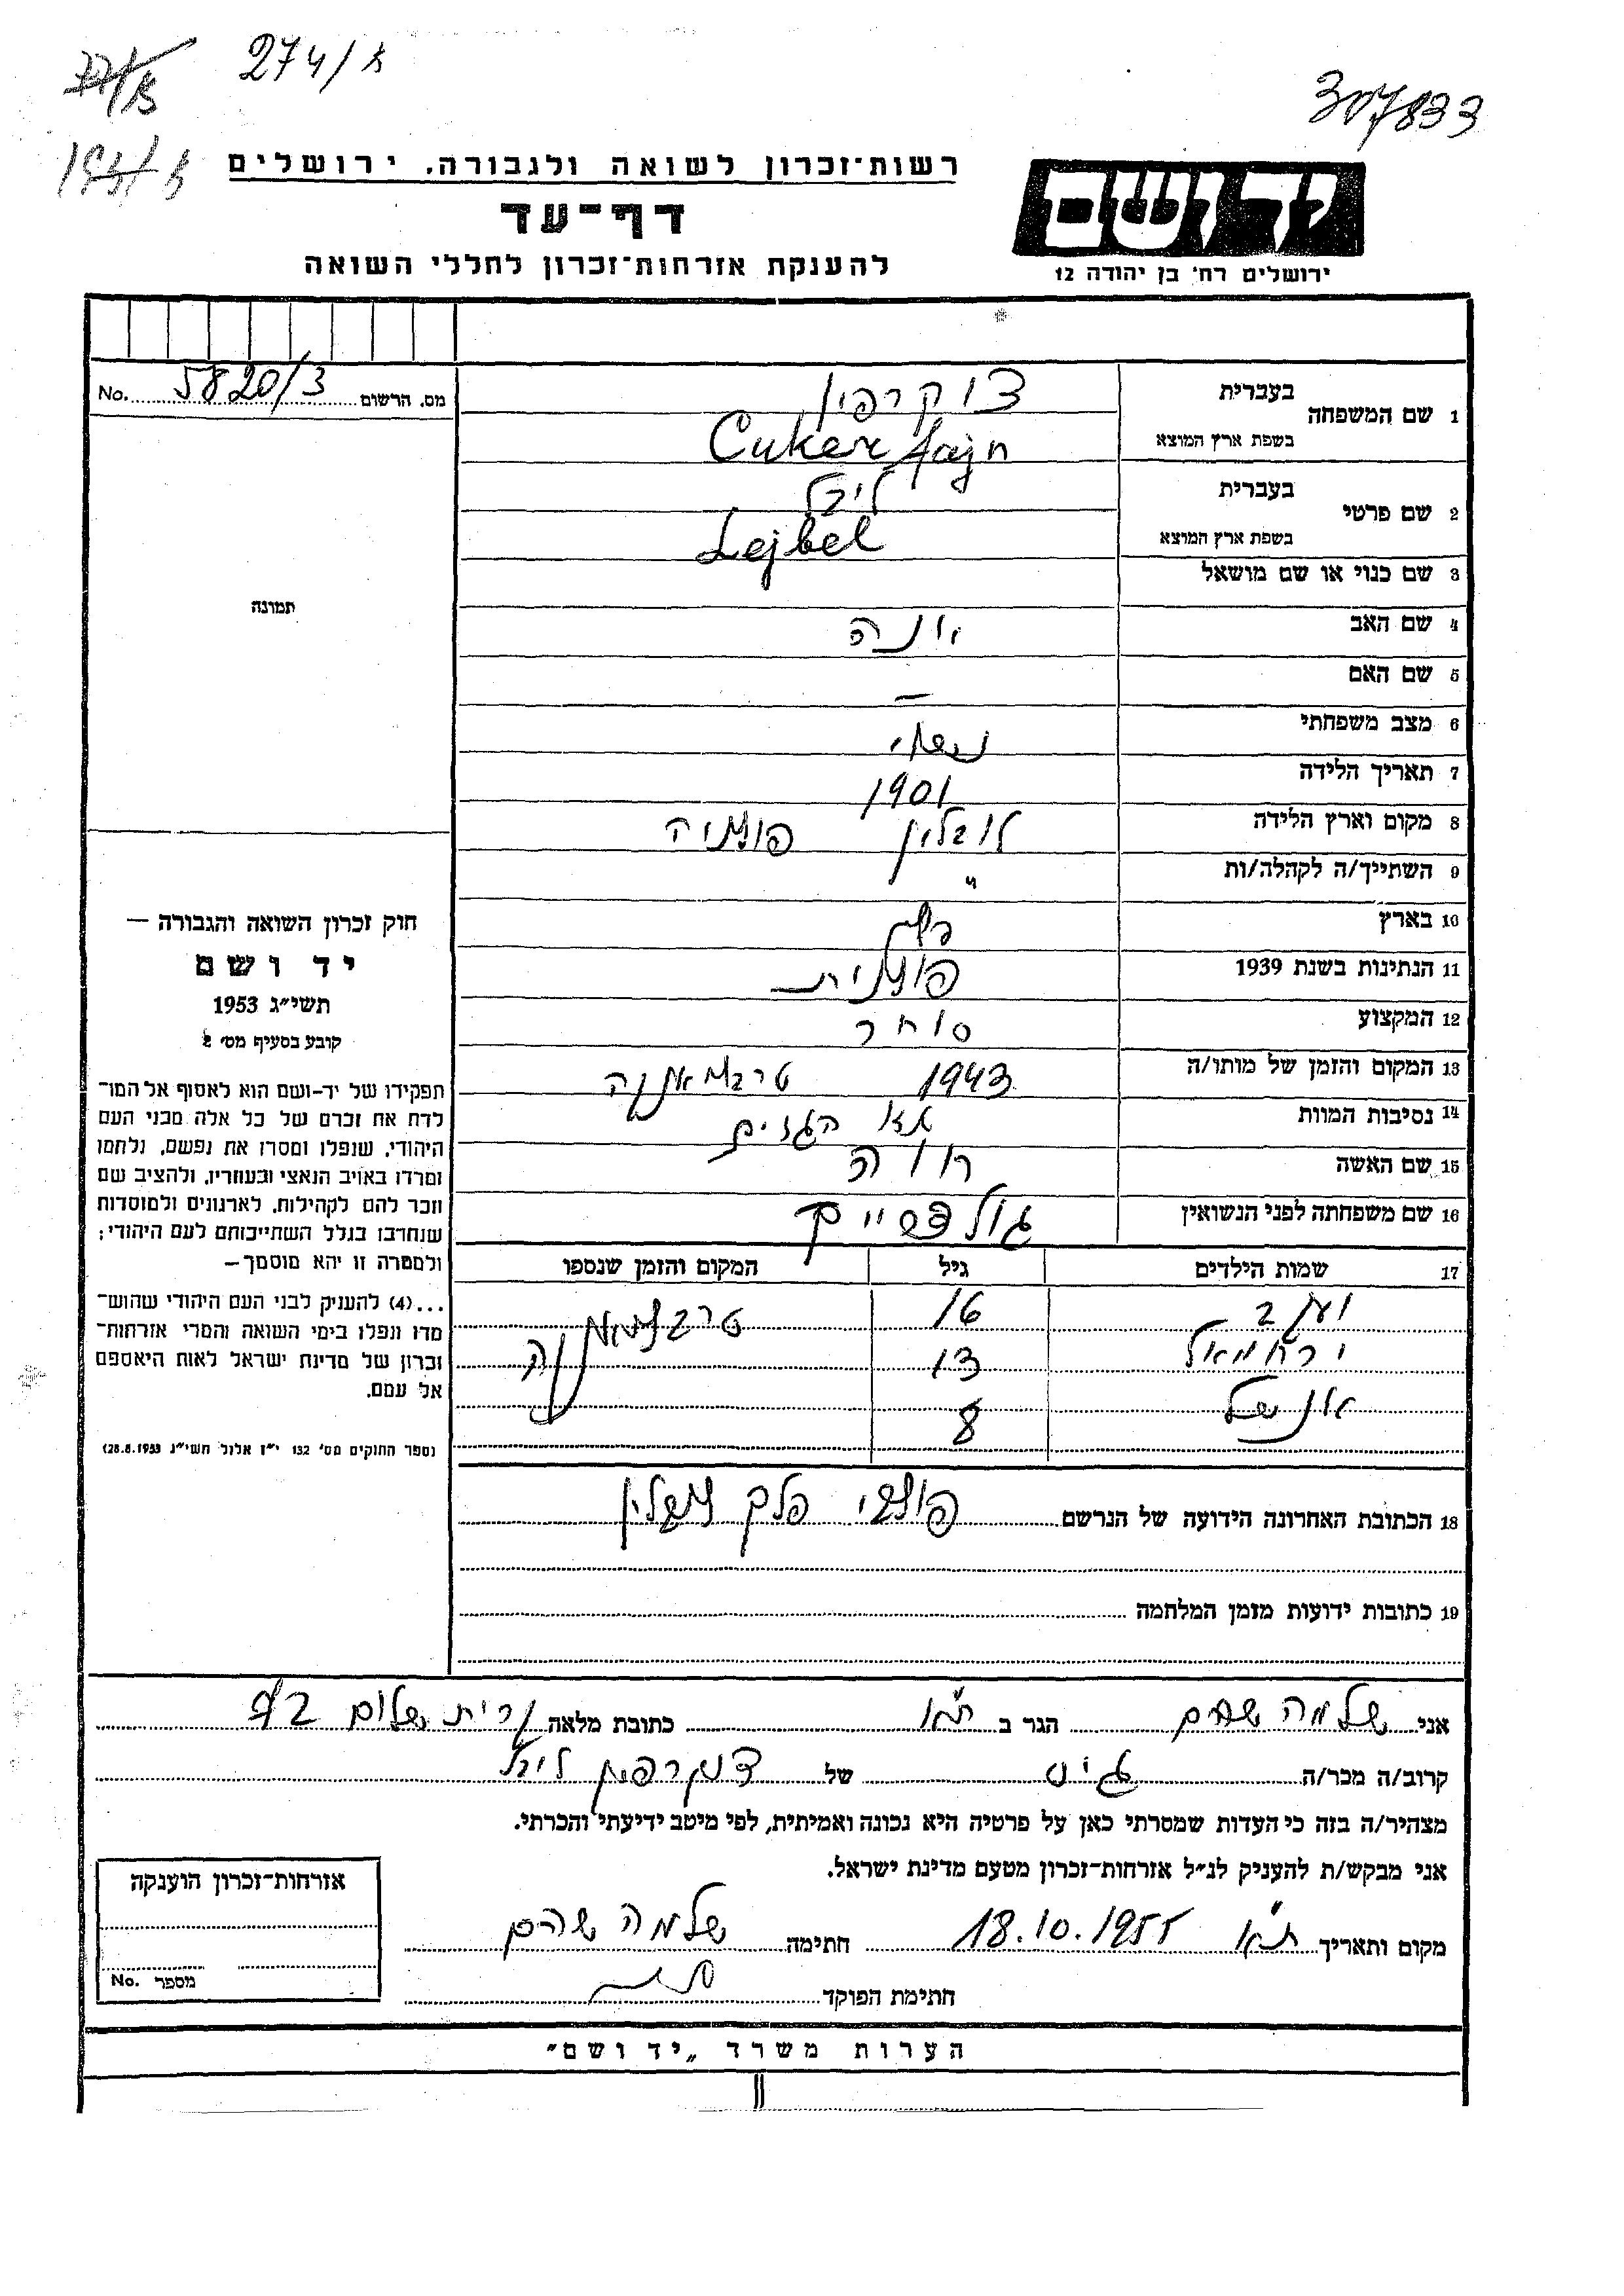 274/א
307833
רשות-זכרון לשואה ולגבורה, ירושלים
יד ושם
דף-עד
להענקת אזרחות-זכרון לחללי השואה
ירושלים רח' בן יהודה 12
מס. הרשום 5820/3 No.
1 שם המשפחה בעברית צוקרפין
בשפת ארץ המוצא Cukerfajn
2 שם פרטי בעברית ליבל
בשפת ארץ המוצא Lejbel
3 שם כנוי או שם מושאל
תמונה
4 שם האב יונה
5 שם האם —
6 מצב משפחתי נשוי
7 תאריך הלידה 1901
8 מקום וארץ הלידה לובלין פולניה
9 השתייך/ה לקהלה/ות "
10 בארץ
11 הנתינות בשנת 1939 פולנית
12 המקצוע סוחר
13 המקום והזמן של מותו/ה 1943 טרבלינקה
14 נסיבות המוות תאי הגזים
15 שם האשה חוה
16 שם משפחתה לפני הנשואין
17 שמות הילדים גיל המקום והזמן שנספו
יעקב 16 טרבלינקה
ירחמיאל 13
אנשל 8
חוק זכרון השואה והגבורה —
יד ושם
תשי"ג 1953
קובע בסעיף מס' 2
תפקידו של יד-ושם הוא לאסוף אל המו-
לדת את זכרם של כל אלה מבני העם
היהודי, שנפלו ומסרו את נפשם, נלחמו
ומרדו באויב הנאצי ובעוזריו, ולהציב שם
וזכר להם לקהילות, לארגונים ולמוסדות
שנחרבו בגלל השתייכותם לעם היהודי;
ולמטרה זו יהא מוסמך —
...(4) להעניק לבני העם היהודי שהוש-
מדו ונפלו בימי השואה והמרי אזרחות-
זכרון של מדינת ישראל לאות היאספם
אל עמם.
(ספר החוקים מס' 132 י"ז אלול תשי"ג 28.8.1953)
18 הכתובת האחרונה הידועה של הנרשם פלך לובלין
19 כתובות ידועות מזמן המלחמה
אני שלמה שהם הגר ב ת"א כתובת מלאה קרית שלום
קרוב/ה מכר/ה גיס של צוקרפין ליבל
מצהיר/ה בזה כי העדות שמסרתי כאן על פרטיה היא נכונה ואמיתית, לפי מיטב ידיעתי והכרתי.
אני מבקש/ת להעניק לנ"ל אזרחות-זכרון מטעם מדינת ישראל.
מקום ותאריך ת"א 18.10.1955 חתימה שלמה שהם
חתימת הפוקד
אזרחות-זכרון הוענקה
מספר No.
הערות משרד „יד ושם"